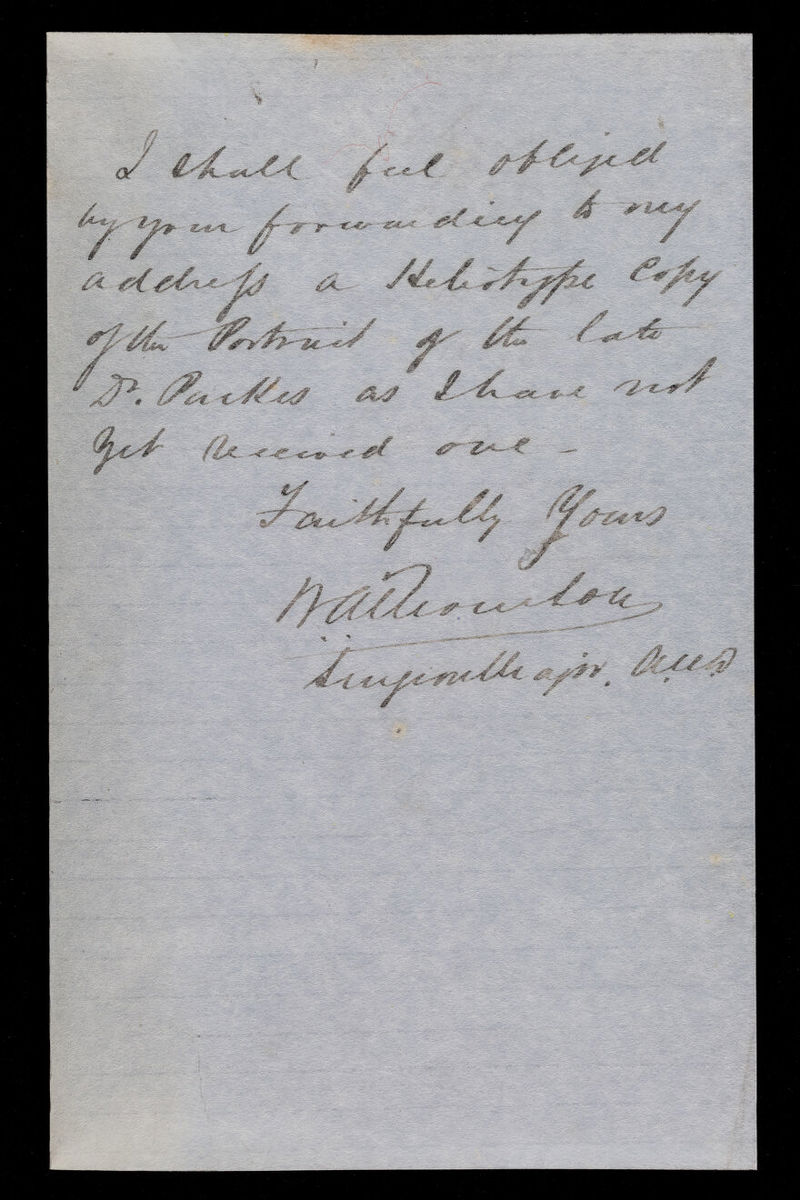 I shall feel obliged
by your forwarding to my
address a Heliotype Copy
of the Portrait of the late
Dr. Parkes as I have not
yet received one -
Faithfully Yours
Surgeon Major. A.M.D